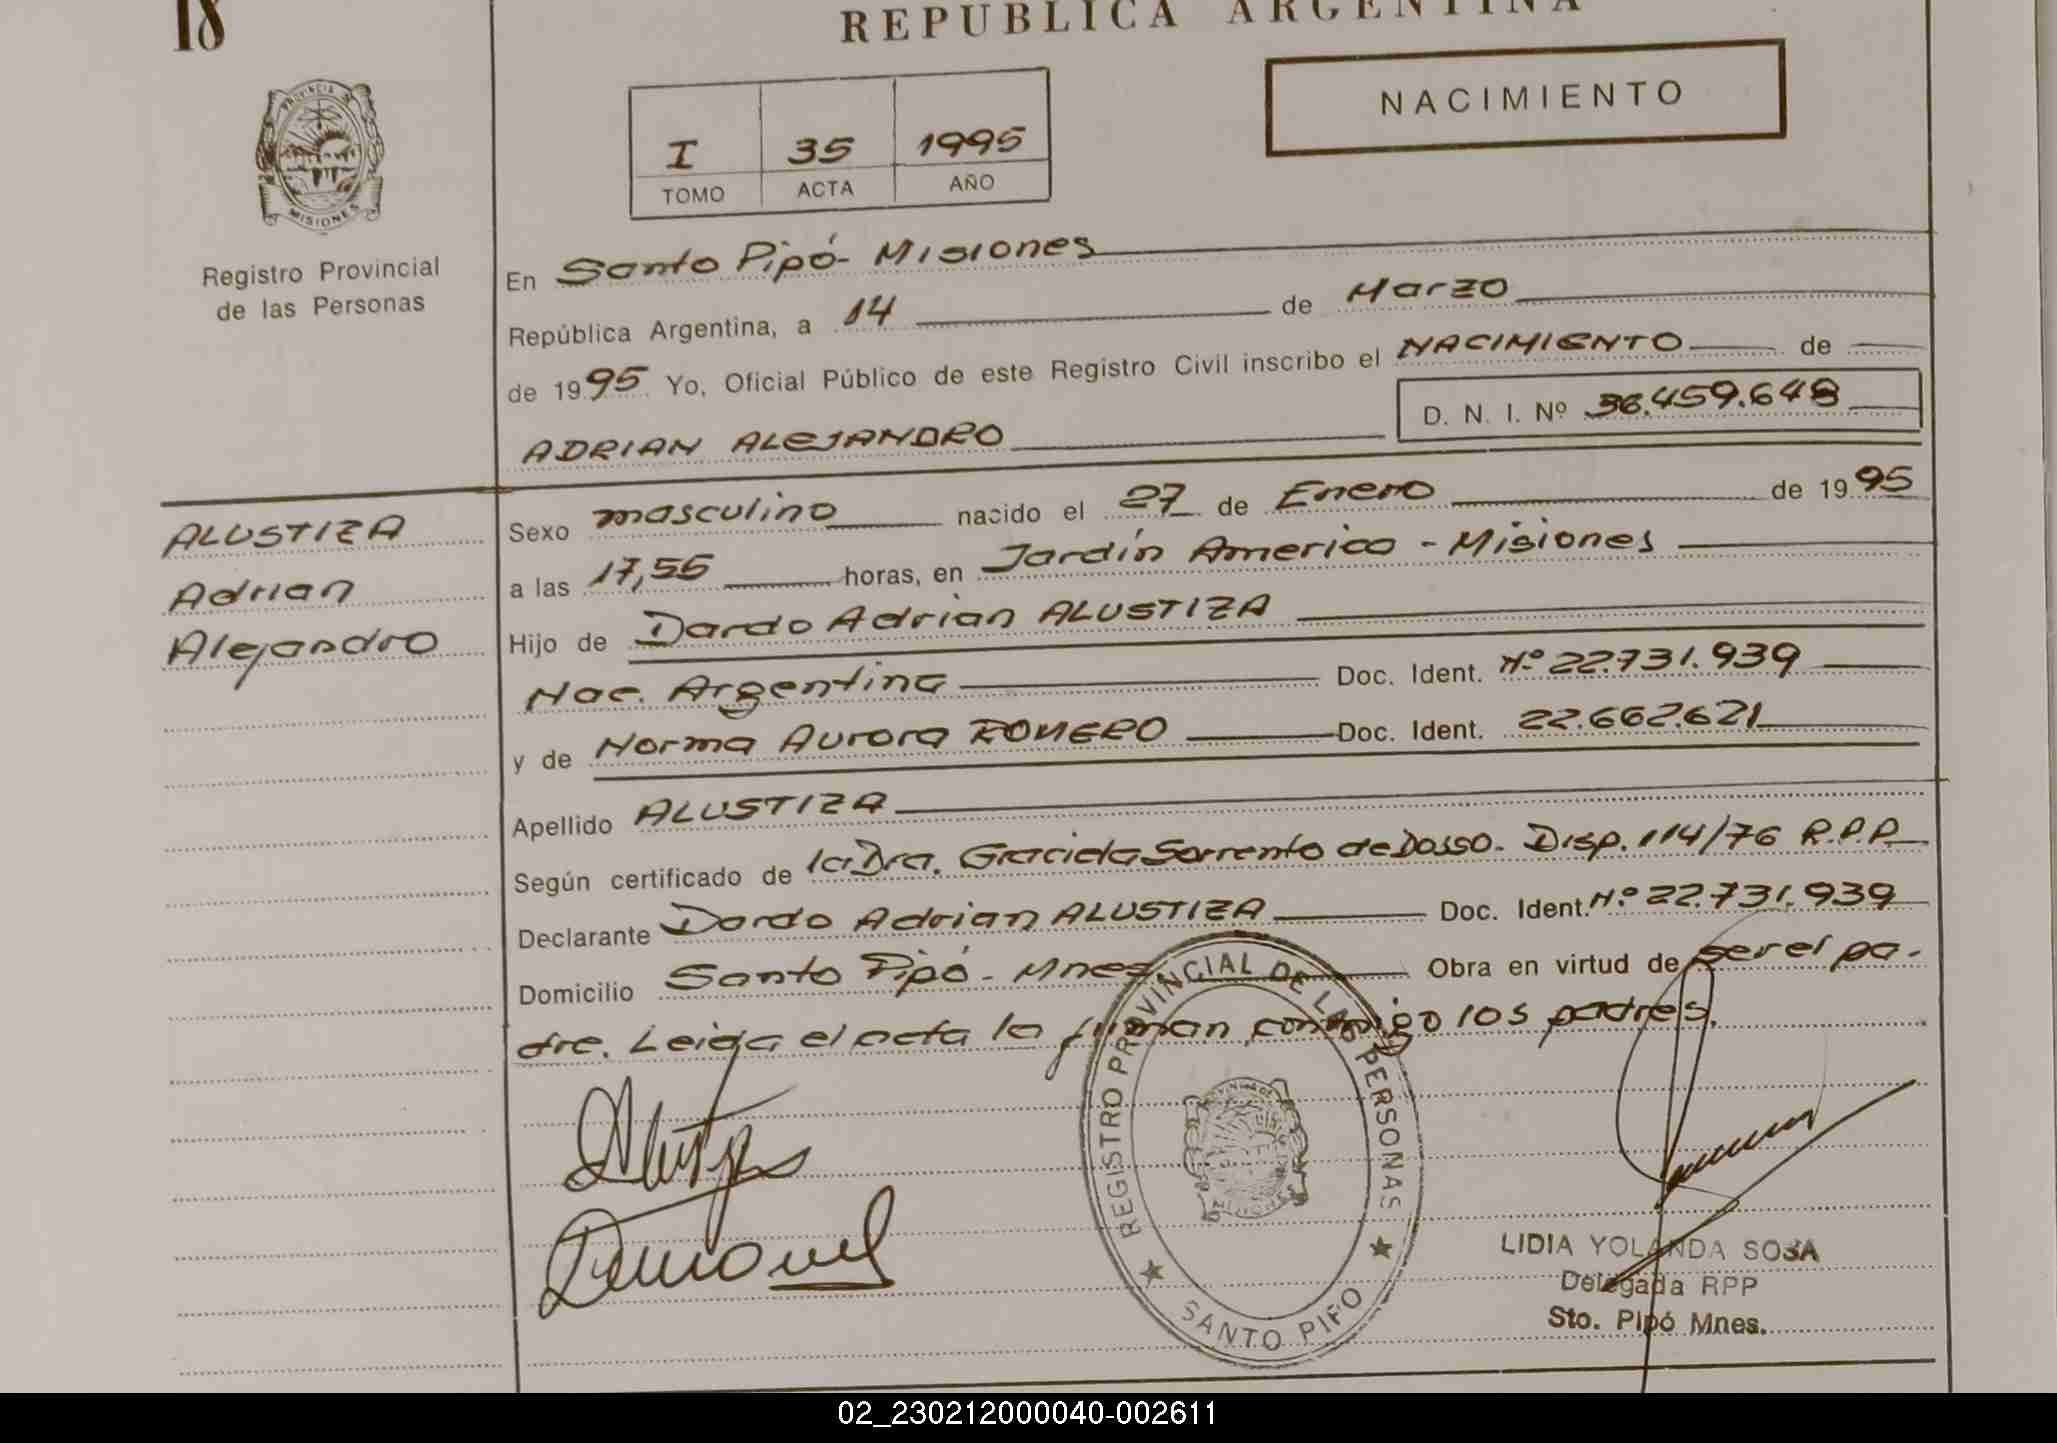 18
REPUBLICA ARGENTINA
NACIMIENTO
I 35 1995
TOMO ACTA AÑO
PROVINCIA DE
MISIONES
Registro Provincial
de las Personas
En Santo Pipó - Misiones
República Argentina, a 14 de Marzo
de 1995 Yo, Oficial Público de este Registro Civil inscribo el NACIMIENTO de
ADRIAN ALEJANDRO D. N. I. Nº 38.459.648
ALUSTIZA
Adrian
Alejandro
Sexo masculino nacido el 27 de Enero de 1995
a las 17,55 horas, en Jardín America - Misiones
Hijo de Dardo Adrian ALUSTIZA
Nac. Argentina Doc. Ident. Nº 22.731.939
y de Norma Aurora ROMERO Doc. Ident. 22.662.621
Apellido ALUSTIZA
Según certificado de la Dra. Graciela Sorrento de Dosso. Disp. 114/76 R.P.P.
Declarante Dardo Adrian ALUSTIZA Doc. Ident. Nº 22.731.939
Domicilio Santo Pipó - Mnes Obra en virtud de ser el pa-
dre. Leida el acta la firman conmigo los padres.
REGISTRO PROVINCIAL DE LAS PERSONAS
SANTO PIPO
LIDIA YOLANDA SOSA
Delegada RPP
Sto. Pipó Mnes.
02_230212000040-002611